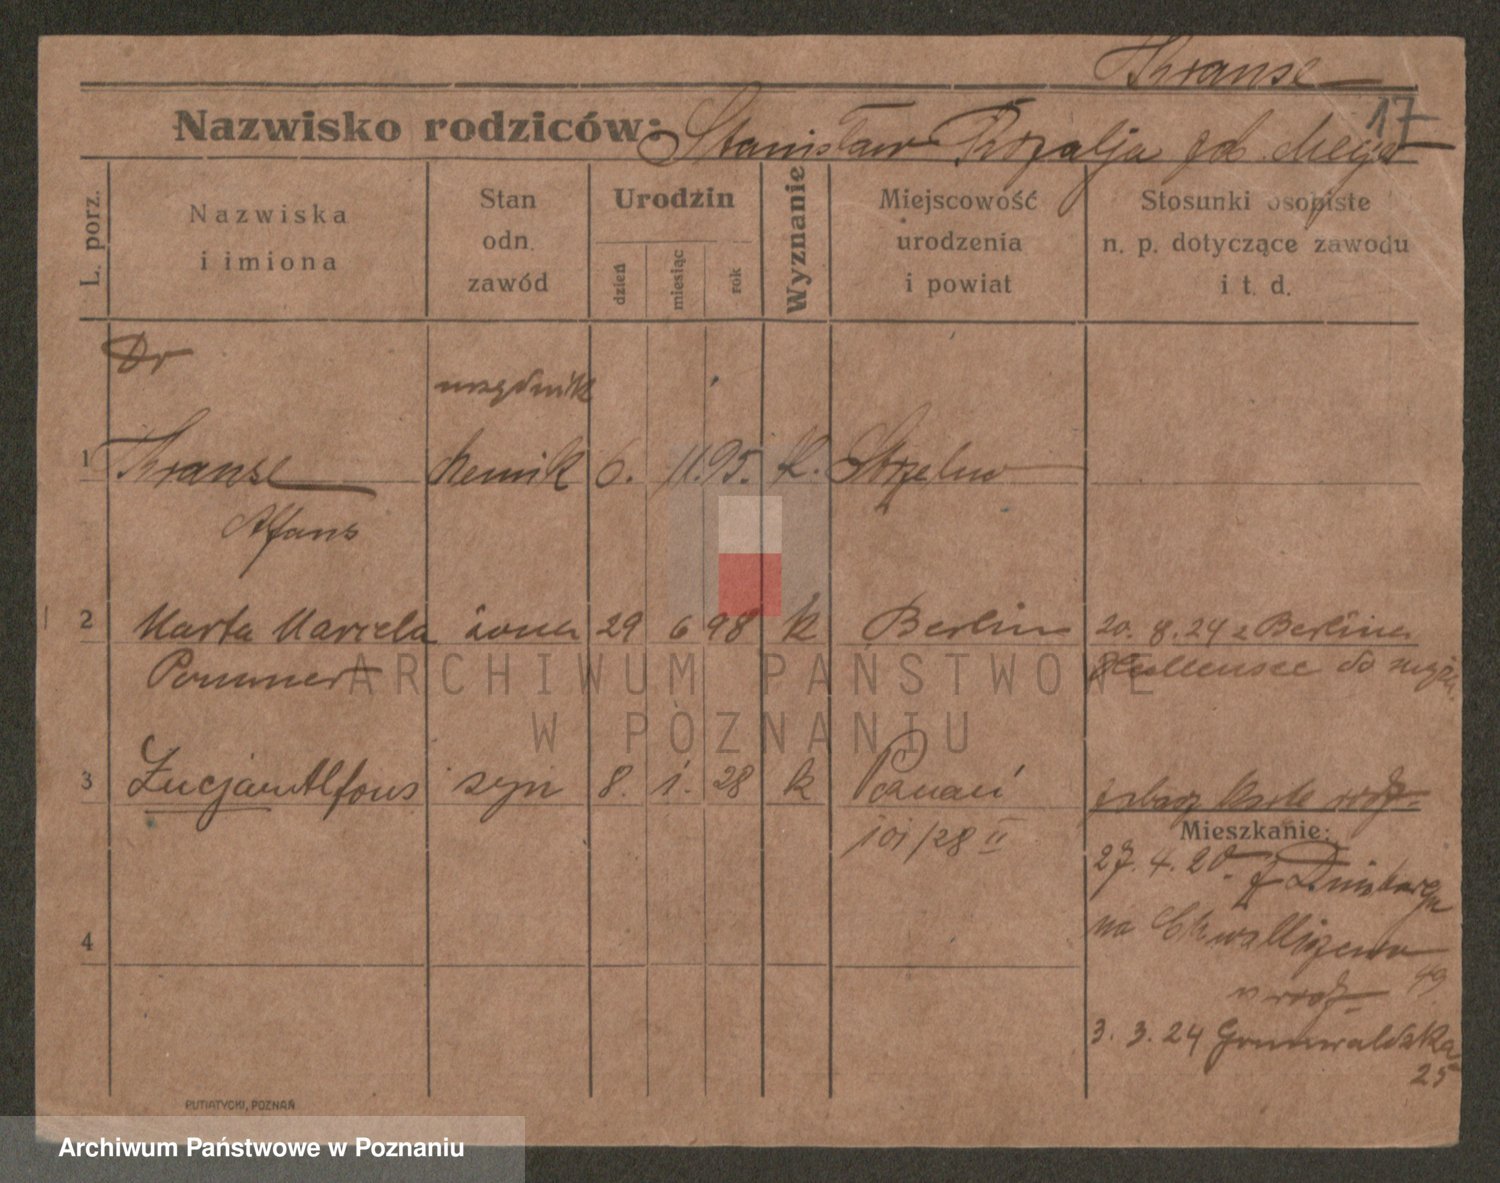 Krause
17
Nazwisko rodziców: Stanisław Rozalja
L. porz.
Nazwiska i imiona
Stan odn. zawód
Urodzin
dzień
miesiąc
rok
Wyznanie
Miejscowość urodzenia i powiat
Stosunki osobiste n. p. dotyczące zawodu i t. d.
Dr
urzędnik
1 Krause chemik 6. 11. 95. k. Strzelno
Alfons
2 Marta Marcela żona 29 6 98 k Berlin 20. 8. 24 z Berlina
Pommer do męża
3 Lucjan Alfons syn 8. 1. 28 k Poznań
101/28 II
Mieszkanie:
27. 4. 20. z Duisburga
na Chwalliszewo
49
4
3. 3. 24 Grunwaldzka
25
PUTIATYCKI, POZNAŃ
ARCHIWUM PAŃSTWOWE
W POZNANIU
Archiwum Państwowe w Poznaniu